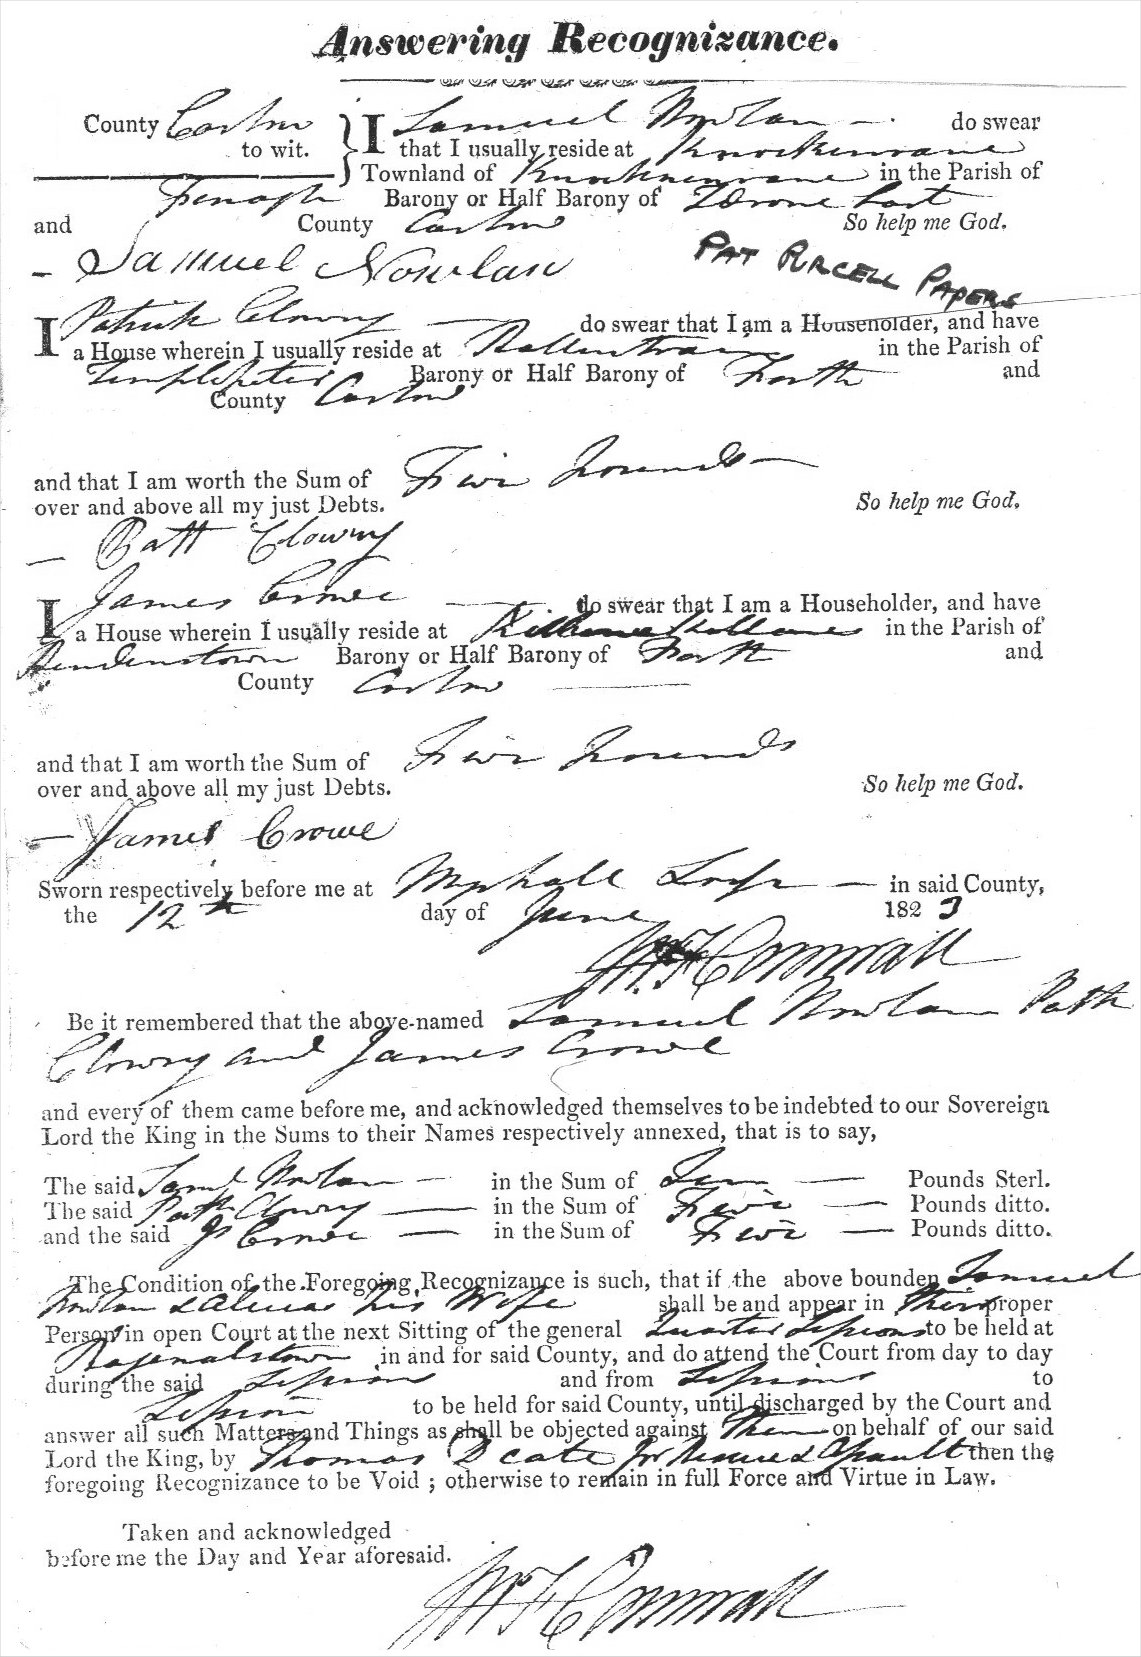 Answering Recognizance.
County Carlow } I Samuel Nowlan do swear
to wit. that I usually reside at
Townland of in the Parish of
Fenagh Barony or Half Barony of Idrone East
and County Carlow So help me God.
Samuel Nowlan
PAT PURCELL PAPERS
I Patrick Clowry do swear that I am a Householder, and have
a House wherein I usually reside at Ballintrane in the Parish of
Templepeter Barony or Half Barony of Forth and
County Carlow
and that I am worth the Sum of Five Pounds
over and above all my just Debts. So help me God.
Patt Clowry
I James Crowe do swear that I am a Householder, and have
a House wherein I usually reside at in the Parish of
Barony or Half Barony of Forth and
County Carlow
and that I am worth the Sum of Five Pounds
over and above all my just Debts. So help me God.
James Crowe
Sworn respectively before me at Myshall Lodge in said County,
the 12th day of June 1823
Cornwall
Be it remembered that the above-named Samuel Nowlan Patk
Clowry and James Crowe
and every of them came before me, and acknowledged themselves to be indebted to our Sovereign
Lord the King in the Sums to their Names respectively annexed, that is to say,
The said Saml Nowlan in the Sum of Ten Pounds Sterl.
The said Patk Clowry in the Sum of Five Pounds ditto.
and the said Js Crowe in the Sum of Five Pounds ditto.
The Condition of the Foregoing Recognizance is such, that if the above bounden Samuel
Nowlan & his Wife shall be and appear in Their proper
Person in open Court at the next Sitting of the general Quarter Sessions to be held at
Bagenalstown in and for said County, and do attend the Court from day to day
during the said Sessions and from Sessions to
Session to be held for said County, until discharged by the Court and
answer all such Matters and Things as shall be objected against Them on behalf of our said
Lord the King, by Thomas for Rescue & Assault then the
foregoing Recognizance to be Void ; otherwise to remain in full Force and Virtue in Law.
Taken and acknowledged
before me the Day and Year aforesaid.
Cornwall